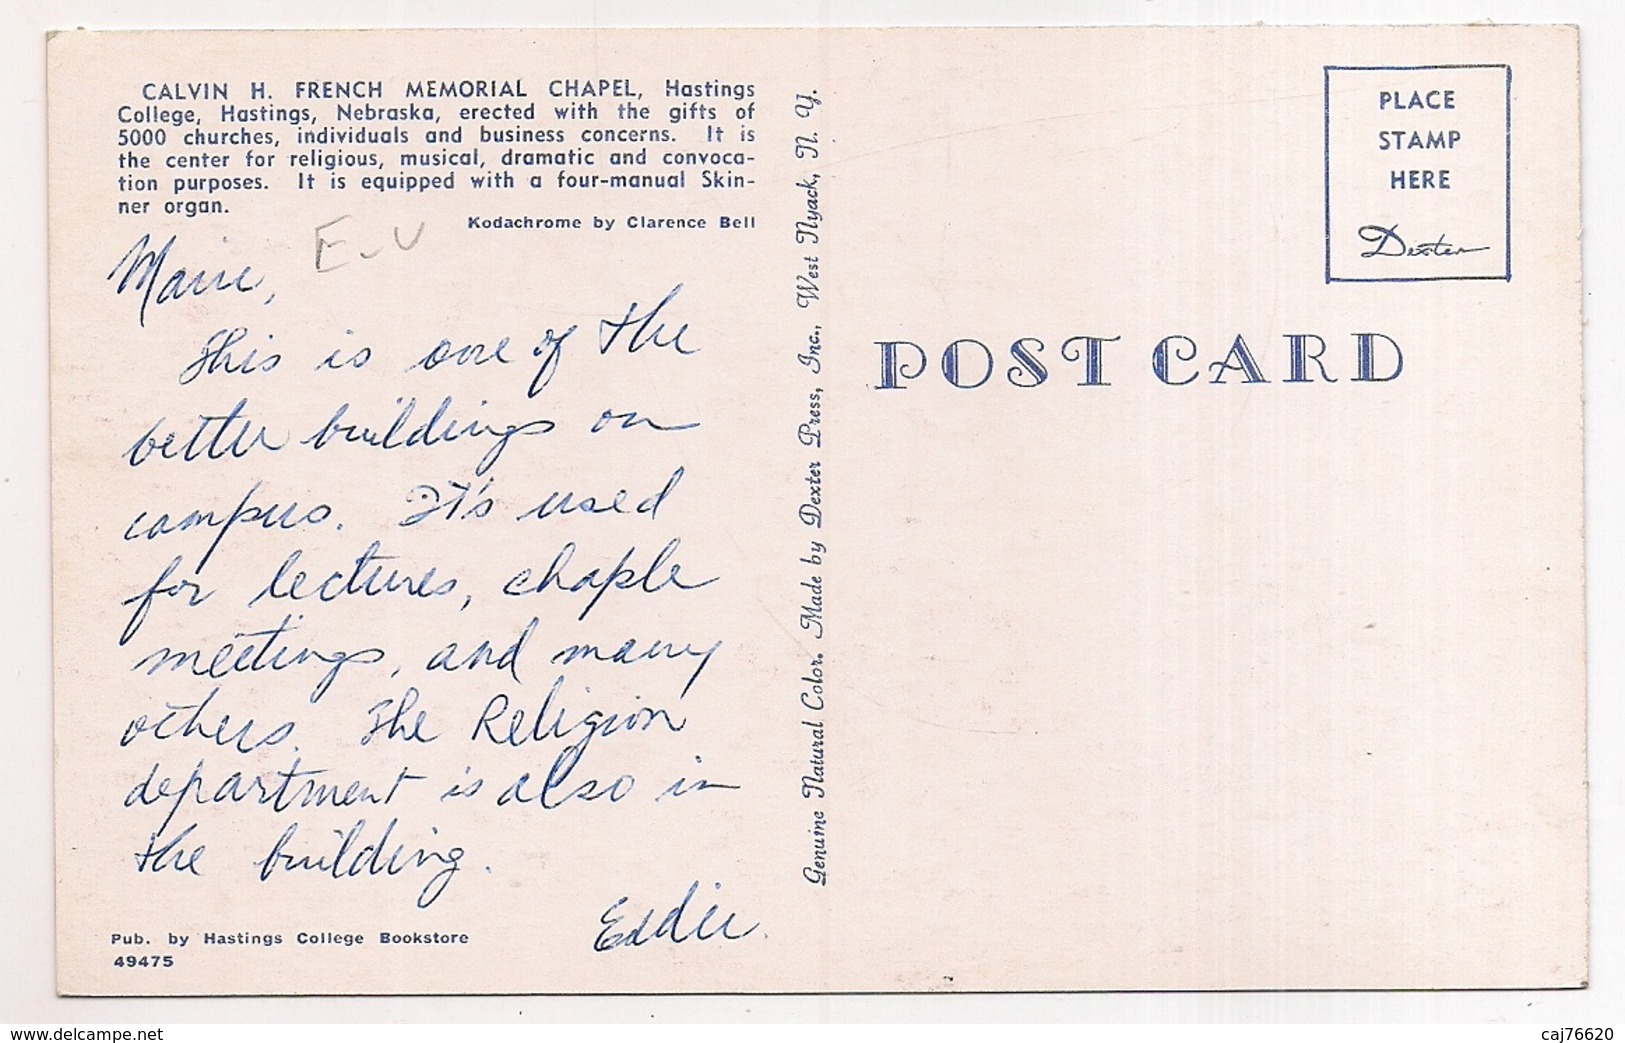 CALVIN H. FRENCH MEMORIAL CHAPEL, Hastings
College, Hastings, Nebraska, erected with the gifts of
5000 churches, individuals and business concerns. It is
the center for religious, musical, dramatic and convoca-
tion purposes. It is equipped with a four-manual Skin-
ner organ.
Kodachrome by Clarence Bell
E-U
This is one of the
better buildings on
campus. It's used
for lectures, chaple
meetings, and many
others. The Religion
department is also in
the building.
Eddie.
Pub. by Hastings College Bookstore
49475
Genuine Natural Color. Made by Dexter Press, Inc., West Nyack, N. Y.
PLACE
STAMP
HERE
Dexter
POST CARD
www.delcampe.net
caj76620